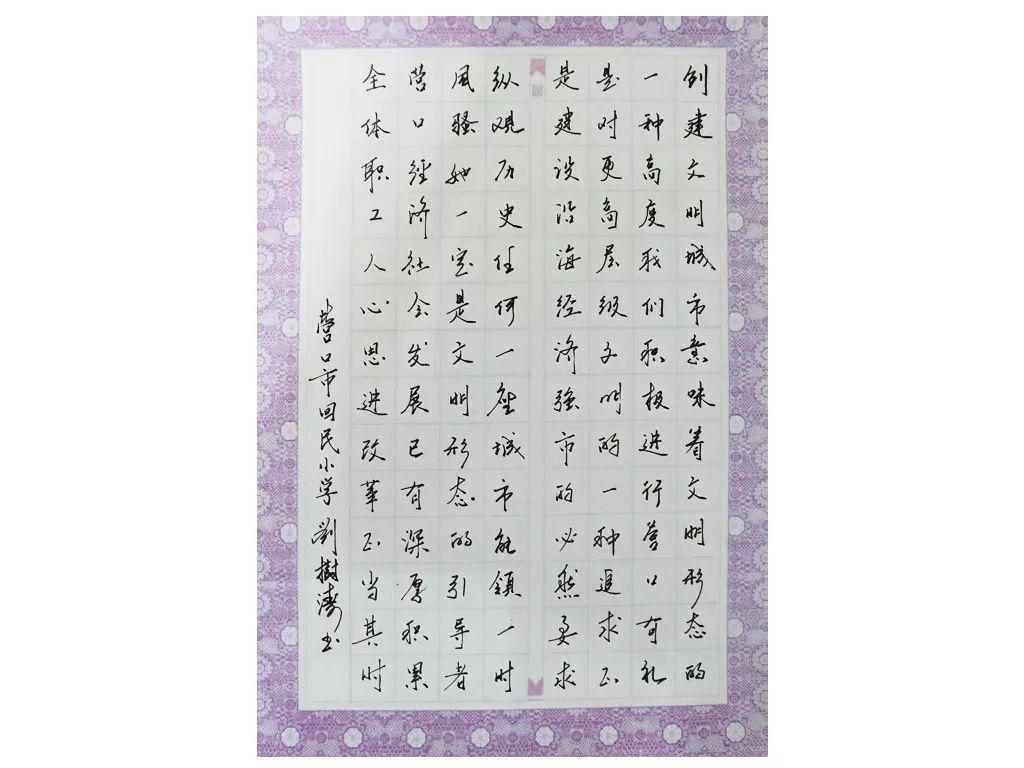 创建文明城市意味着文明形态的
一种高度我们积极进行营口有礼
是对更高层级文明的一种追求正
是建设沿海经济强市的必然要求
纵观历史任何一座城市能领一时
风骚她一定是文明形态的引导者
营口经济社会发展已有深厚积累
全体职工人心思进改革正当其时
营口市回民小学刘树涛书